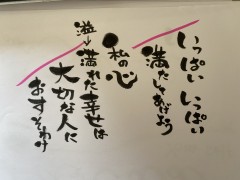 いっぱい いっぱい
満たしてあげよう
●私の心
溢→満れた幸せは
大切な人に
おすそわけ